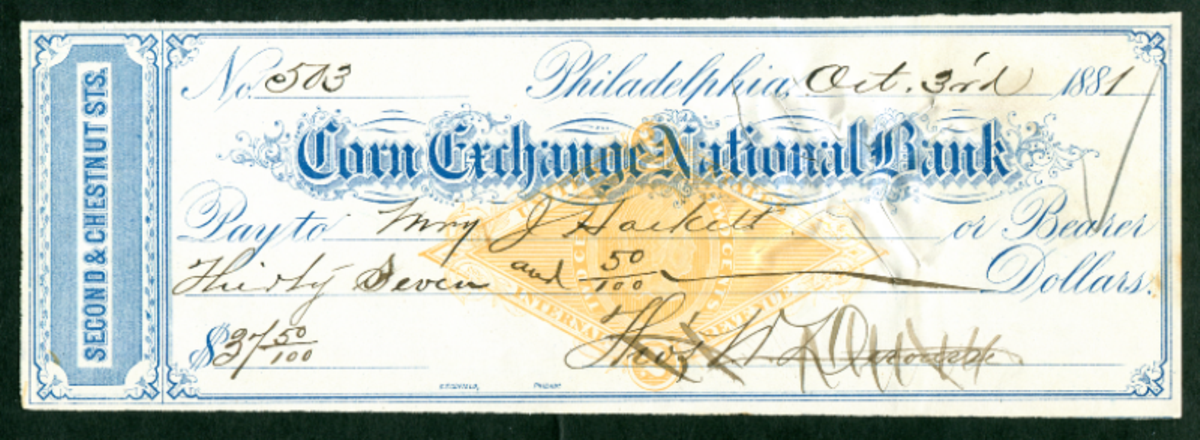 SECOND & CHESTNUT STS.
No. 503 Philadelphia, Oct. 3rd 1881
Corn Exchange National Bank
Pay to Mry J Hackett or Bearer
Thirty Seven and 50/100 Dollars.
$37 50/100
INTERNAL REVENUE